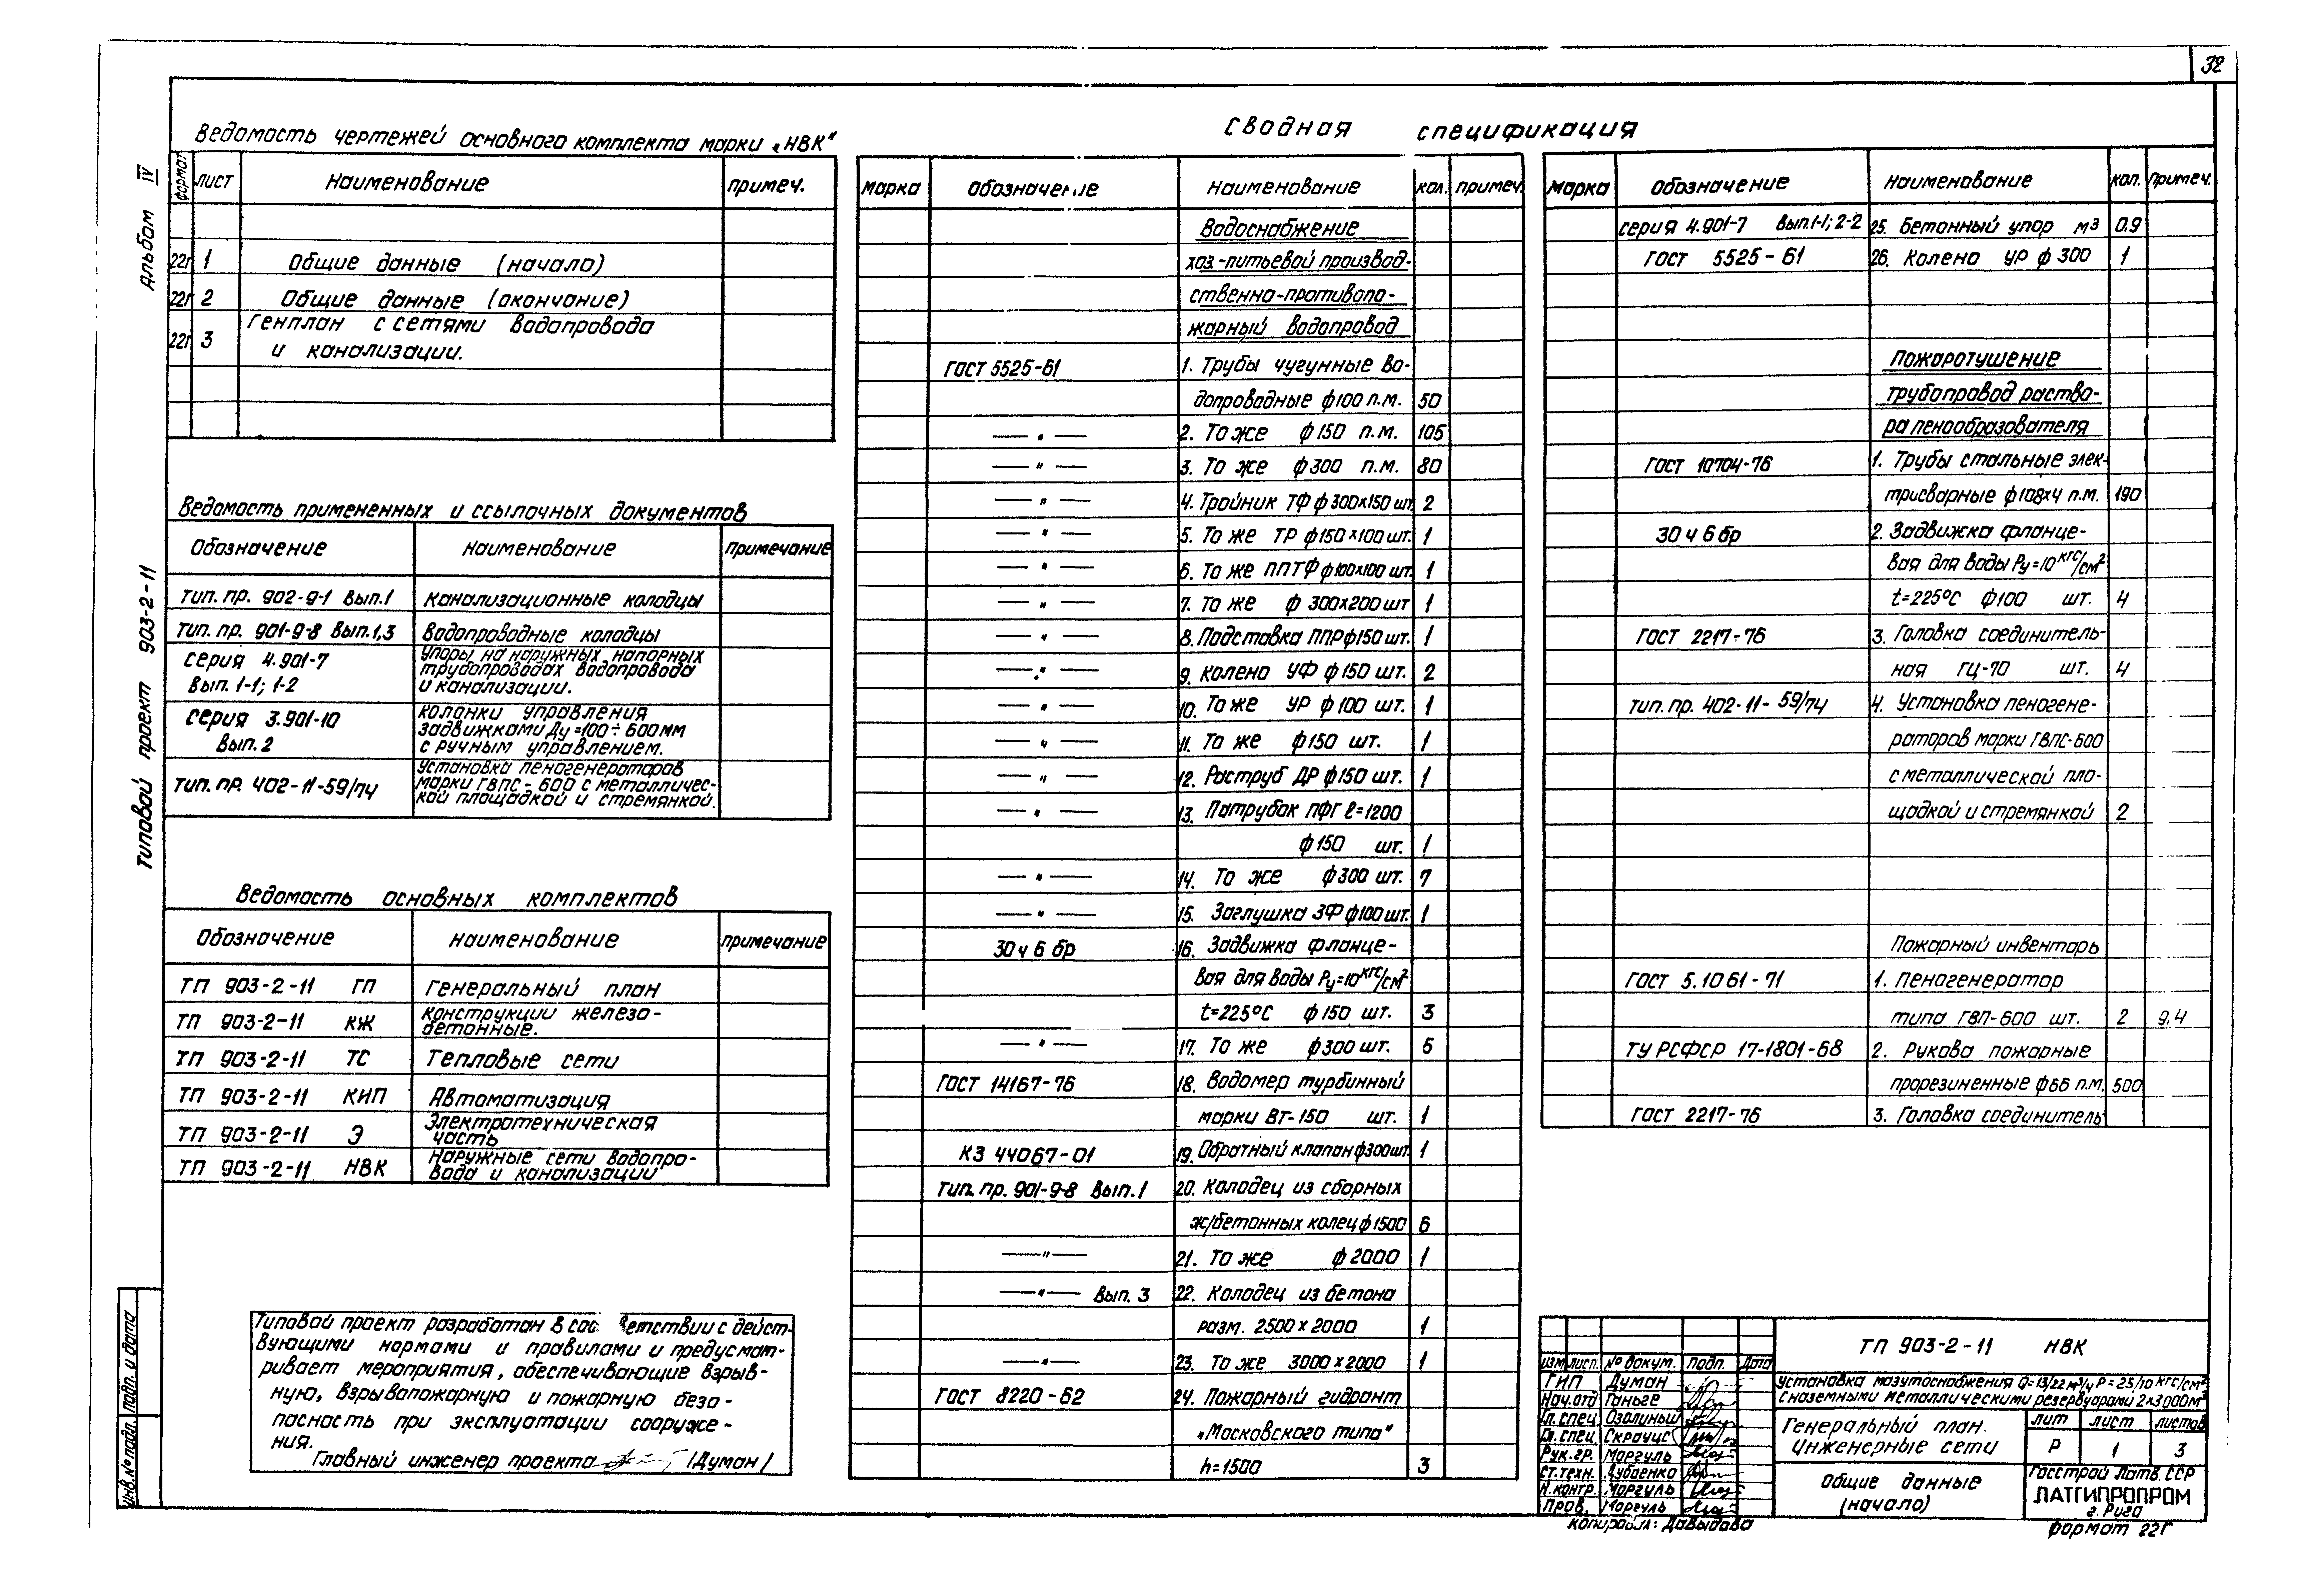 32
Альбом IV
Типовой проект 903-2-11
Ведомость чертежей основного комплекта марки „НВК"
формат лист Наименование примеч.
22г 1 Общие данные (начало)
22г 2 Общие данные (окончание)
22г 3 Генплан с сетями водопровода
и канализации.
Ведомость примененных и ссылочных документов
Обозначение Наименование Примечание
Тип. пр. 902-9-1 вып.1 Канализационные колодцы
Тип. пр. 901-9-8 вып.1,3 Водопроводные колодцы
серия 4.901-7 Упоры на наружных напорных
вып. 1-1; 1-2 трубопроводах водопровода
и канализации.
серия 3.901-10 Колонки управления
вып. 2 задвижками Ду=100÷600мм
с ручным управлением.
Тип. пр. 402-11-59/74 Установка пеногенераторов
марки ГВПС-600 с металличес-
кой площадкой и стремянкой.
Ведомость основных комплектов
Обозначение Наименование примечание
ТП 903-2-11 ГП Генеральный план
ТП 903-2-11 КЖ Конструкции железо-
бетонные.
ТП 903-2-11 ТС Тепловые сети
ТП 903-2-11 КИП Автоматизация
ТП 903-2-11 Э Электротехническая
часть
ТП 903-2-11 НВК Наружные сети водопро-
вода и канализации
Типовой проект разработан в соо ветствии с дейст-
вующими нормами и правилами и предусмат-
ривает мероприятия, обеспечивающие взрыв-
ную, взрывопожарную и пожарную безо-
пасность при эксплуатации сооруже-
ния.
Главный инженер проекта /Думан/
инв.№подл. подп. и дата
Сводная спецификация
марка Обозначение Наименование кол. примеч.
Водоснабжение
хоз.-питьевой производ-
ственно-противопо-
жарный водопровод
ГОСТ 5525-61 1. Трубы чугунные во-
допроводные ф100 п.м. 50
— " — 2. То же ф150 п.м. 105
— " — 3. То же ф300 п.м. 80
— " — 4. Тройник ТФ ф300х150 шт. 2
— " — 5. То же ТР ф150х100 шт. 1
— " — 6. То же ППТФ ф100х100 шт. 1
— " — 7. То же ф 300х200 шт 1
— " — 8. Подставка ППР ф150 шт. 1
— " — 9. Колено УФ ф150 шт. 2
— " — 10. То же УР ф100 шт. 1
— " — 11. То же ф150 шт. 1
— " — 12. Раструб ДР ф150 шт. 1
— " — 13. Патрубок ПФГ ℓ=1200
ф150 шт. 1
— " — 14. То же ф300 шт. 7
— " — 15. Заглушка ЗФ ф100 шт. 1
30ч6бр 16. Задвижка фланце-
вая для воды Ру=10 кгс/см²
t=225°С ф150 шт. 3
— " — 17. То же ф300 шт. 5
ГОСТ 14167-76 18. Водомер турбинный
марки ВТ-150 шт. 1
КЗ 44067-01 19. Обратный клапан ф300шт. 1
Тип. пр. 901-9-8 вып.1 20. Колодец из сборных
ж/бетонных колец ф1500 6
— " — 21. То же ф2000 1
— " — вып. 3 22. Колодец из бетона
разм. 2500х2000 1
— " — 23. То же 3000х2000 1
ГОСТ 8220-62 24. Пожарный гидрант
„Московского типа"
h=1500 3
марка Обозначение Наименование кол. примеч.
серия 4.901-7 вып.1-1; 2-2 25. Бетонный упор м³ 0.9
ГОСТ 5525-61 26. Колено УР ф300 1
Пожаротушение
трубопровод раство-
ра пенообразователя
ГОСТ 10704-76 1. Трубы стальные элек-
трисварные ф108х4 п.м. 190
30ч6бр 2. Задвижка фланце-
вая для воды Ру=10 кгс/см²
t=225°С ф100 шт. 4
ГОСТ 2217-76 3. Головка соединитель-
ная ГЦ-70 шт. 4
тип. пр. 402-11-59/74 4. Установка пеногене-
раторов марки ГВПС-600
с металлической пло-
щадкой и стремянкой 2
Пожарный инвентарь
ГОСТ 5.1061-71 1. Пеногенератор
типа ГВП-600 шт. 2 9.4
ТУ РСФСР 17-1801-68 2. Рукова пожарные
прорезиненные ф66 п.м. 500
ГОСТ 2217-76 3. Головка соединитель-
ТП 903-2-11 НВК
изм. лист. № докум. подп. Дата
ГИП Думан
Нач.отд Ганьге
Гл.спец. Озолиньш
Гл.спец. Скрауцс
Рук.гр. Маргуль
Ст.техн. Дубенко
Н.контр. Маргуль
Пров. Маргуль
Установка мазутоснабжения Q=13/22 м³/ч Р=25/10 кгс/см²
с наземными металлическими резервуарами 2х3000м³
Генеральный план.
Инженерные сети
лит лист листов
Р 1 3
Общие данные
(начало)
Госстрой Латв.ССР
ЛАТГИПРОПРОМ
г. Рига
копировал: Давыдова
формат 22Г